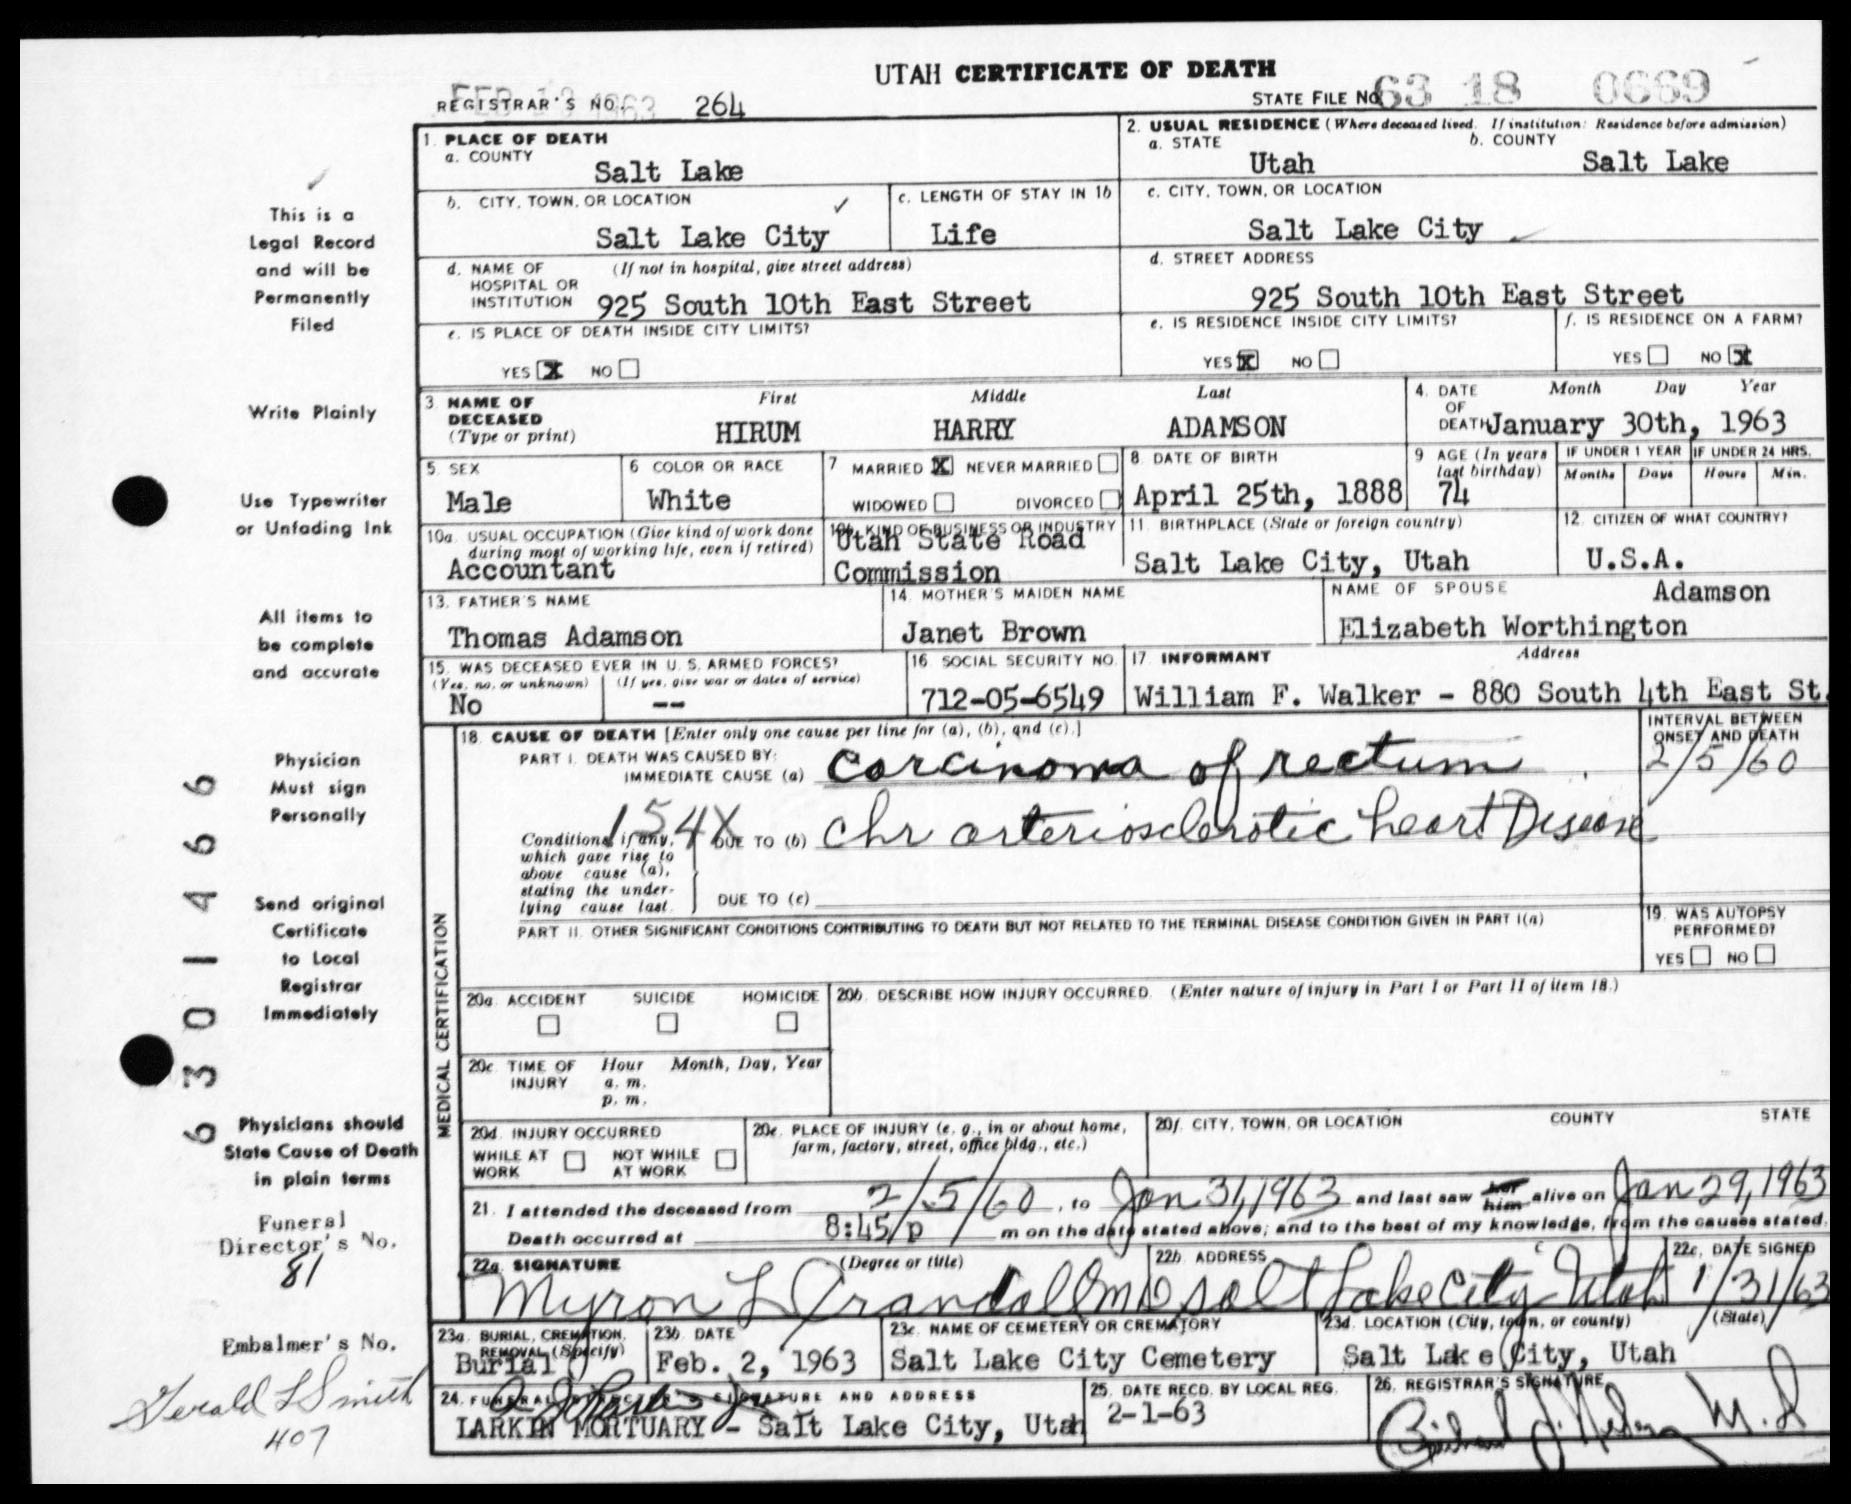 UTAH CERTIFICATE OF DEATH
FEB 13 1963
REGISTRAR'S NO. 264
STATE FILE NO. 63 18 0669
1. PLACE OF DEATH
a. COUNTY
Salt Lake
2. USUAL RESIDENCE (Where deceased lived. If institution: Residence before admission)
a. STATE b. COUNTY
Utah Salt Lake
b. CITY, TOWN, OR LOCATION ✓
Salt Lake City
c. LENGTH OF STAY IN 1b
Life
c. CITY, TOWN, OR LOCATION
Salt Lake City
d. NAME OF HOSPITAL OR INSTITUTION (If not in hospital, give street address)
925 South 10th East Street
d. STREET ADDRESS
925 South 10th East Street
e. IS PLACE OF DEATH INSIDE CITY LIMITS?
YES X NO
e. IS RESIDENCE INSIDE CITY LIMITS?
YES X NO
f. IS RESIDENCE ON A FARM?
YES NO X
3. NAME OF DECEASED (Type or print)
First Middle Last
HIRUM HARRY ADAMSON
4. DATE OF DEATH Month Day Year
January 30th, 1963
5. SEX
Male
6 COLOR OR RACE
White
7 MARRIED X NEVER MARRIED
WIDOWED DIVORCED
8. DATE OF BIRTH
April 25th, 1888
9 AGE (In years last birthday)
74
IF UNDER 1 YEAR
Months Days
IF UNDER 24 HRS.
Hours Min.
10a. USUAL OCCUPATION (Give kind of work done during most of working life, even if retired)
Accountant
10b. KIND OF BUSINESS OR INDUSTRY
Utah State Road
Commission
11. BIRTHPLACE (State or foreign country)
Salt Lake City, Utah
12. CITIZEN OF WHAT COUNTRY?
U.S.A.
13. FATHER'S NAME
Thomas Adamson
14. MOTHER'S MAIDEN NAME
Janet Brown
NAME OF SPOUSE Adamson
Elizabeth Worthington
15. WAS DECEASED EVER IN U. S. ARMED FORCES?
(Yes, no, or unknown) (If yes, give war or dates of service)
No --
16. SOCIAL SECURITY NO.
712-05-6549
17. INFORMANT Address
William F. Walker - 880 South 4th East St.
MEDICAL CERTIFICATION
18. CAUSE OF DEATH [Enter only one cause per line for (a), (b), and (c).]
INTERVAL BETWEEN ONSET AND DEATH
PART I. DEATH WAS CAUSED BY:
IMMEDIATE CAUSE (a) carcinoma of rectum 2/5/60
154X
Conditions, if any, which gave rise to above cause (a), stating the underlying cause last.
DUE TO (b) chr arteriosclerotic heart Disease
DUE TO (c)
PART II. OTHER SIGNIFICANT CONDITIONS CONTRIBUTING TO DEATH BUT NOT RELATED TO THE TERMINAL DISEASE CONDITION GIVEN IN PART I(a)
19. WAS AUTOPSY PERFORMED?
YES NO
20a. ACCIDENT SUICIDE HOMICIDE
20b. DESCRIBE HOW INJURY OCCURRED. (Enter nature of injury in Part I or Part II of item 18.)
20c. TIME OF INJURY Hour Month, Day, Year
a. m.
p. m.
20d. INJURY OCCURRED
WHILE AT WORK NOT WHILE AT WORK
20e. PLACE OF INJURY (e. g., in or about home, farm, factory, street, office bldg., etc.)
20f. CITY, TOWN, OR LOCATION COUNTY STATE
21. I attended the deceased from 2/5/60, to Jan 31, 1963 and last saw her him alive on Jan 29, 1963
Death occurred at 8:45/p m on the date stated above; and to the best of my knowledge, from the causes stated.
22a. SIGNATURE (Degree or title)
Myron L Crandall MD
22b. ADDRESS
Salt Lake City Utah
22c. DATE SIGNED
1/31/63
23a. BURIAL, CREMATION, REMOVAL (Specify)
Burial
23b. DATE
Feb. 2, 1963
23c. NAME OF CEMETERY OR CREMATORY
Salt Lake City Cemetery
23d. LOCATION (City, town, or county) (State)
Salt Lake City, Utah
24. FUNERAL DIRECTOR'S SIGNATURE AND ADDRESS
LARKIN MORTUARY - Salt Lake City, Utah
25. DATE RECD. BY LOCAL REG.
2-1-63
26. REGISTRAR'S SIGNATURE
M.D
This is a
Legal Record
and will be
Permanently
Filed
Write Plainly
Use Typewriter
or Unfading Ink
All items to
be complete
and accurate
Physician
Must sign
Personally
Send original
Certificate
to Local
Registrar
Immediately
Physicians should
State Cause of Death
in plain terms
Funeral
Director's No.
81
Embalmer's No.
Gerald L Smith
407
63014666